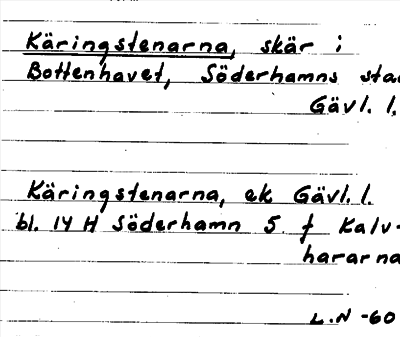 Käringstenarna, skär i
Bottenhavet, Söderhamns sta
Gävl. l.
Käringstenarna, ek Gävl. l.
bl. 14 H Söderhamn 5 f Kalv-
hararna
L.N -60